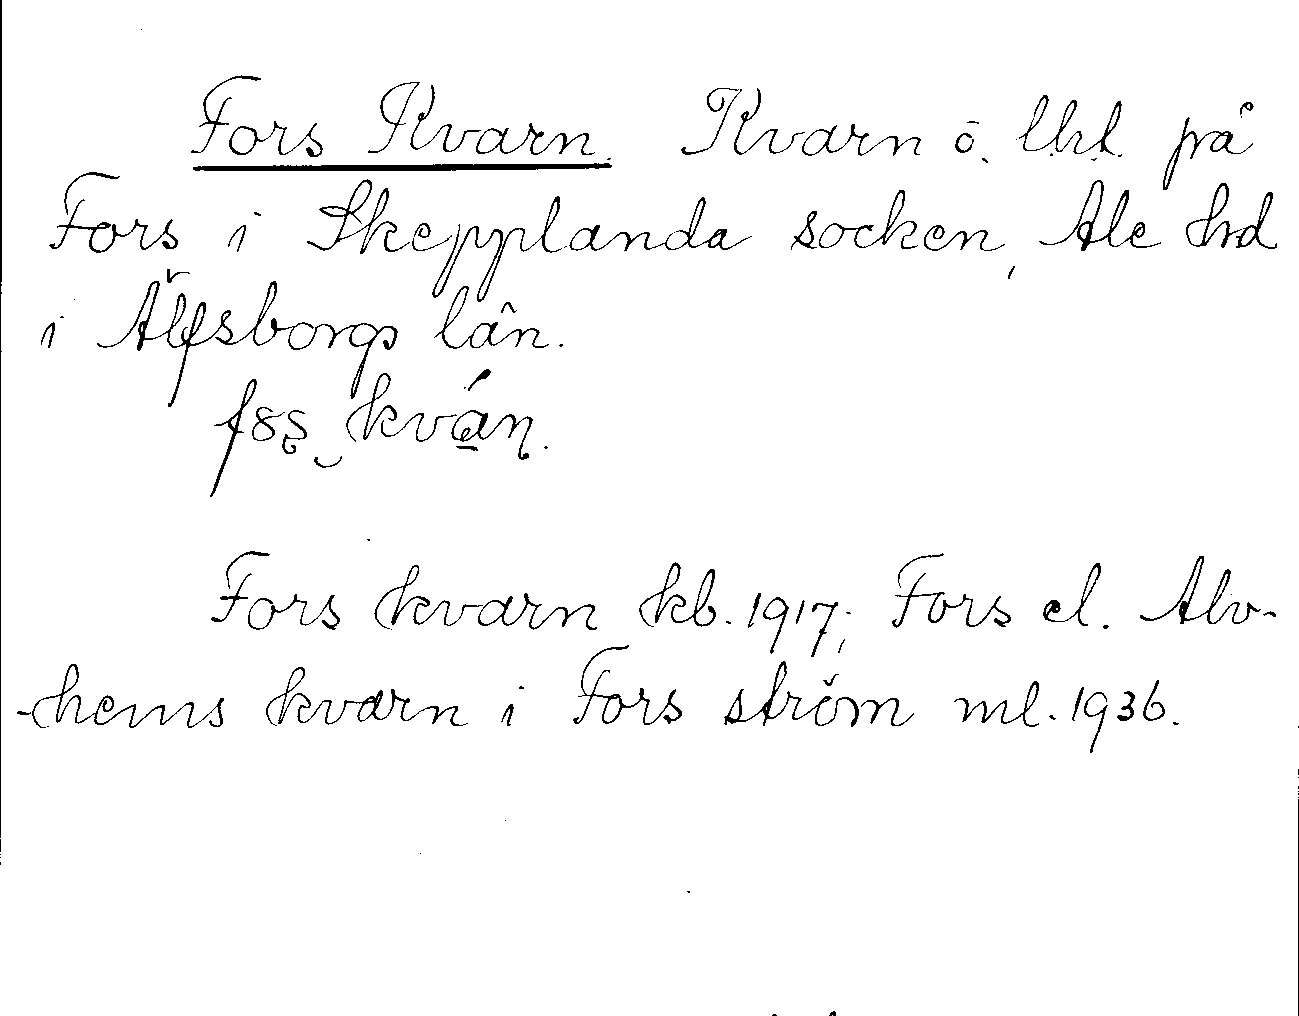 Fors Kvarn. Kvarn o. lht. på
Fors i Skepplanda socken, Ale hrd
i Älfsborgs län.
Fors kvarn kb. 1917; Fors el. Alv-
-hems kvarn i Fors ström ml. 1936.